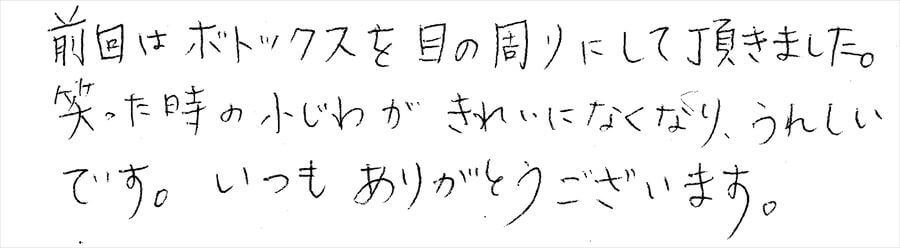 前回はボトックスを目の周りにして頂きました。
笑った時の小じわが きれいになくなり、うれしい
です。いつも ありがとうございます。